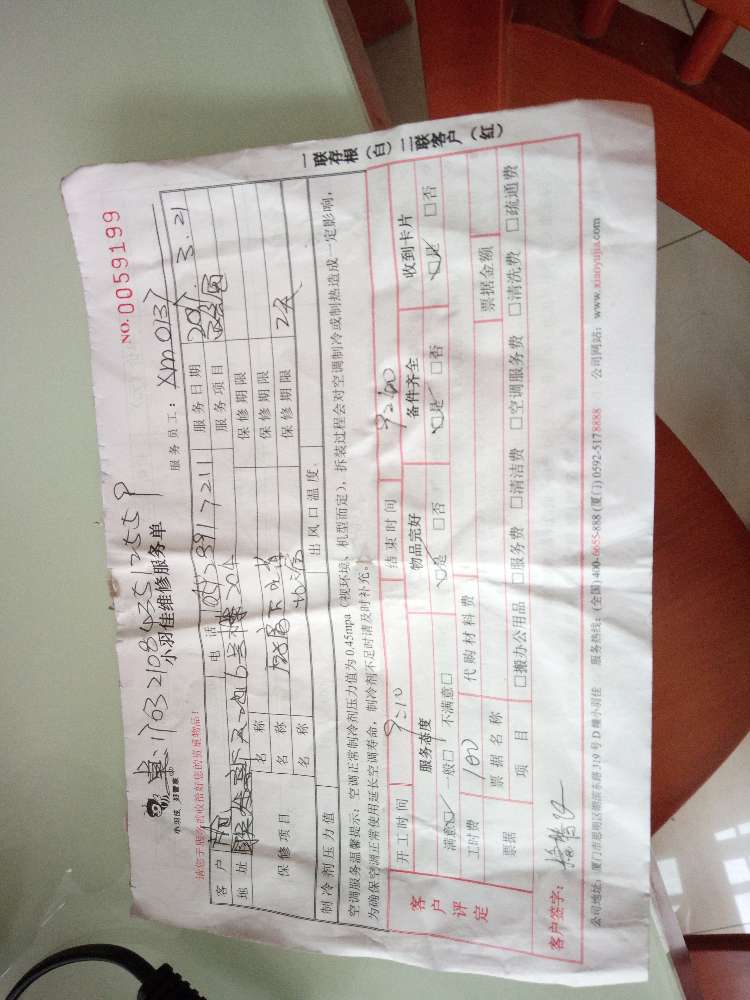 NO.0059199
单:170321084352559
小羽佳 好管家
小羽佳维修服务单
服务员工: XM0137
请您于服务前收拾好您的贵重物品!
客户 电话 服务日期 3.21
地址 204 服务项目
保修项目 名称 保修期限
名称 保修期限
名称 保修期限 2天
制冷剂压力值 出风口温度
空调服务温馨提示:空调正常制冷剂压力值为0.45mpa(视环境、机型而定),拆装过程会对空调制冷或制热造成一定影响,
为确保空调正常使用延长空调寿命,制冷剂不足时请及时补充。
一联存根(白) 二联客户(红)
客户评定
开工时间 9:10 结束时间 9:00
服务态度 物品完好 备件齐全 收到卡片
满意☑ 一般□ 不满意□ ☑是 □否 ☑是 □否 ☑是 □否
工时费 100 代购材料费
票据 票据名称 票据金额
项目 □搬办公用品 □服务费 □清洁费 □空调服务费 □清洗费 □疏通费
客户签字:
公司地址:厦门市思明区湖滨东路319号D幢小羽佳 服务热线:(全国)400-6655-888 (厦门)0592-5178888 公司网站:www.xiaoyujia.com